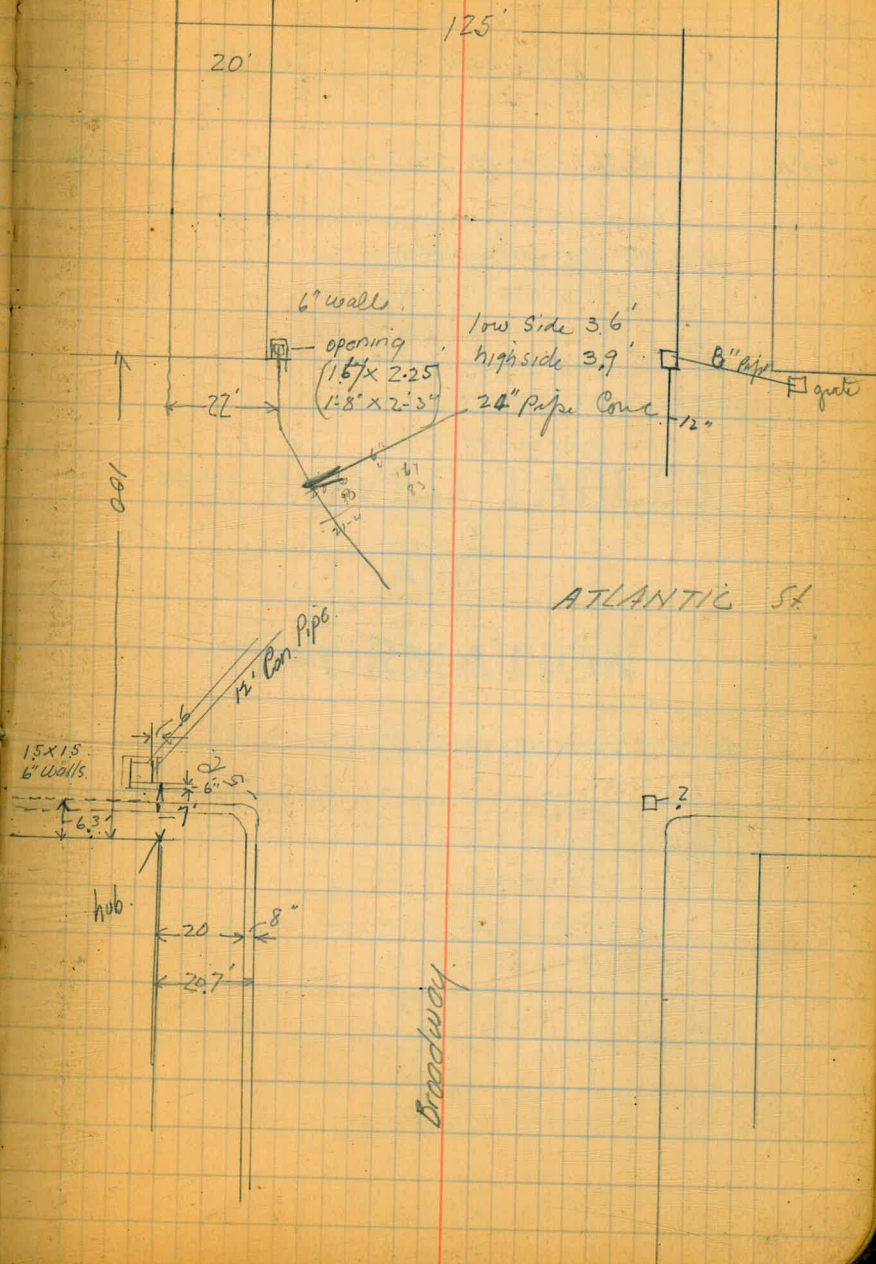 125'
20'
6" wall
opening
(1.67 x 2.25)
(1'-8" x 2'-3")
low Side 3.6'
high side 3.9'
24" Pipe Conc
8" Pipe
grate
12"
22'
100
6"
.67
83
ATLANTIC St.
12" Con. Pipe
.6
1.5 x 1.5
6" Walls.
6"
7'
6.3'
?
hub.
20
8"
20.7'
Broadway